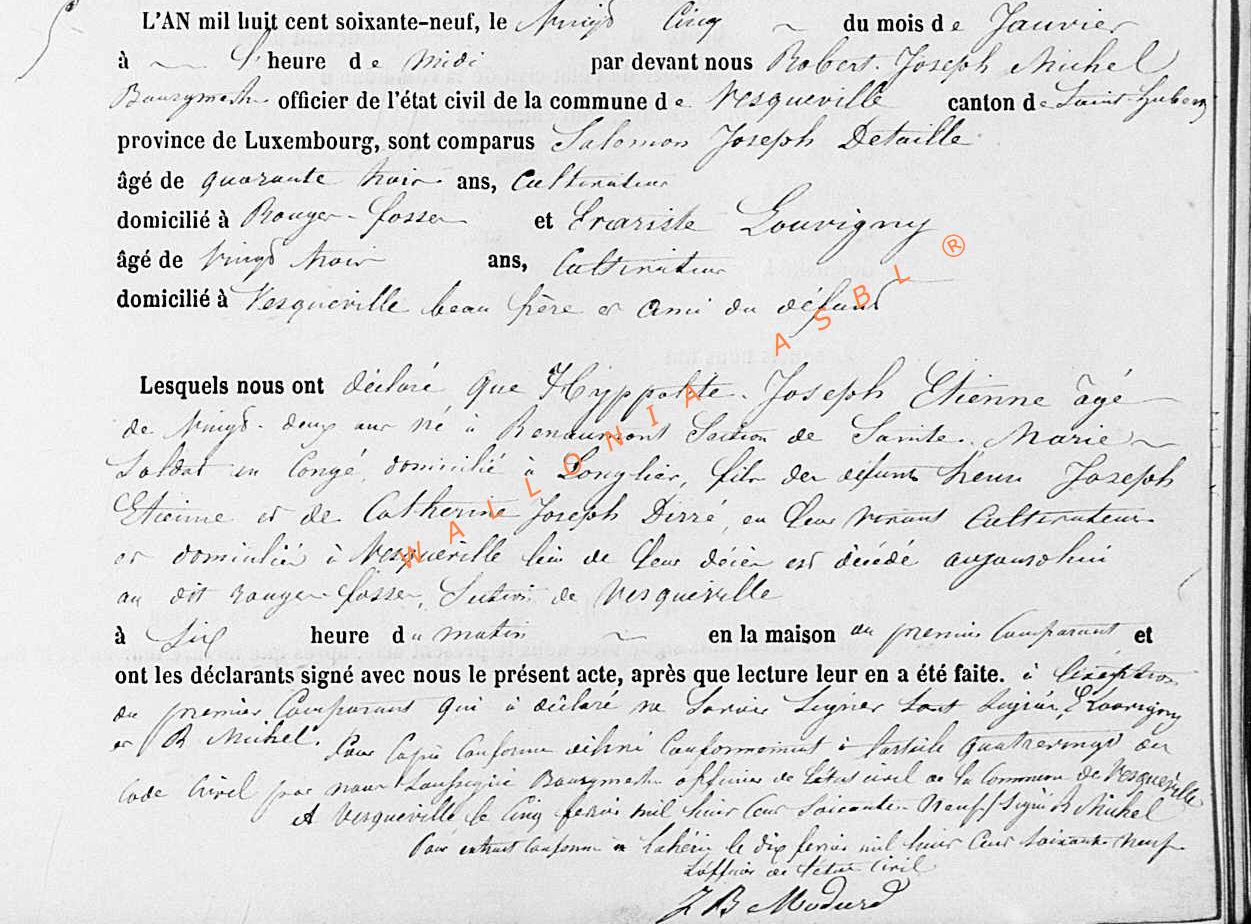 L'AN mil huit cent soixante-neuf, le Vingt Cinq du mois de Janvier
à l'heure de midi par devant nous Robert Joseph Michel
Bourgmestre officier de l'état civil de la commune de Vesqueville canton de Saint-Hubert
province de Luxembourg, sont comparus Salomon Joseph Detaille
âgé de quarante trois ans, Cultivateur
domicilié à Rouges-fosses et Evariste Louvigny
âgé de Vingt trois ans, Cultivateur
domicilié à Vesqueville beau frère et ami du défunt
Lesquels nous ont déclaré que Hyppolite Joseph Etienne âgé
de Vingt-deux ans né à Section de Sainte-Marie
Soldat en Congé, domicilié à Longlier, fils des défunts Henri Joseph
Etienne et de Catherine Joseph en leur vivant Cultivateurs
et domiciliés à Vesqueville lieu de leur décès est décédé aujourdhui
au dit rouges-fosses, Section de Vesqueville
à Six heure du matin en la maison du premier Comparant et
ont les déclarants signé avec nous le présent acte, après que lecture leur en a été faite. à l'exception
du premier Comparant qui à déclaré ne Savoir Signer Sont Signés, E Louvigny
et R Michel. Pour Copie Conforme délivré Conformément à l'article quatrevingt du
Code Civil par nous Soussigné Bourgmestre officier de l'état civil de la Commune de Vesqueville
A Vesqueville le Cinq fevrier mil huit Cent Soixante-Neuf / Signé R Michel
Pour extrait Conforme le dix fevrier mil huit Cent Soixante neuf
L'officier de l'état Civil
J B
WALLONIA ASBL ®